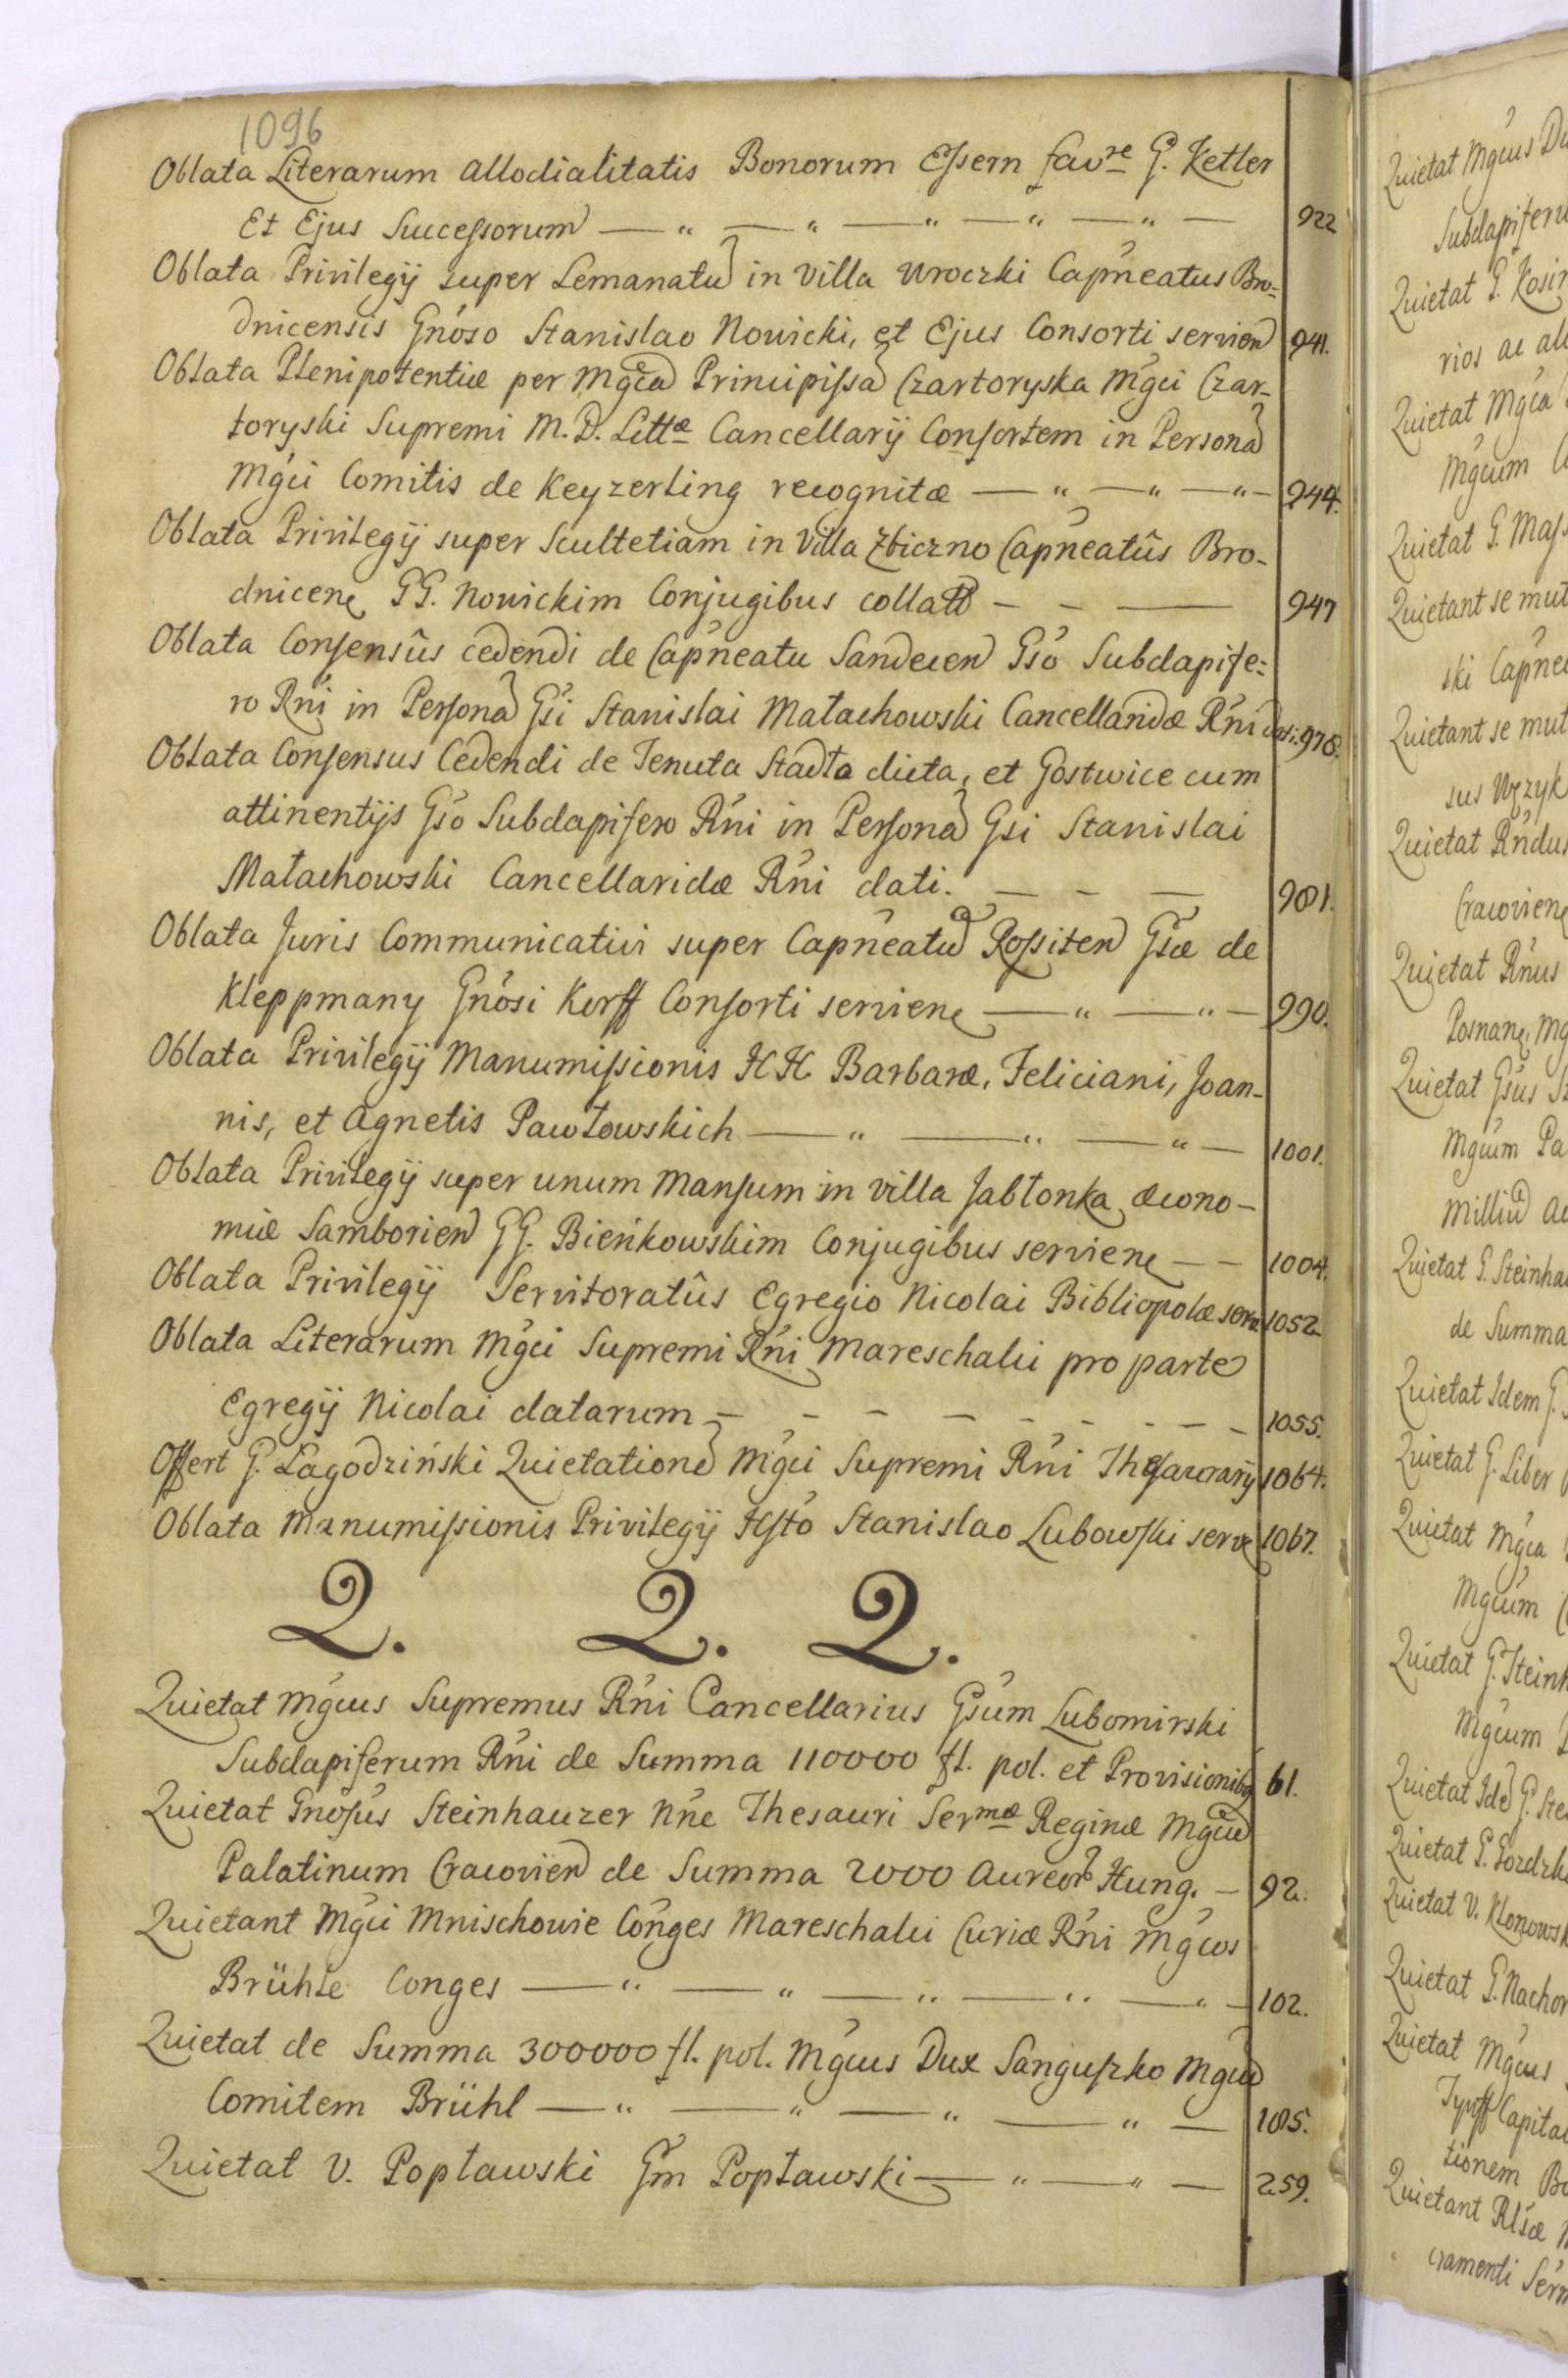 1096
Oblata Literarum Allodialitatis Bonorum Essern favre G. Ketler
Et Ejus Successorum — " — " — " — " — " — 922
Oblata Privilegij super Lemanatu in Villa Uroczki Capneatus Bro=
dnicensis Gnoso Stanislao Nowicki, et Ejus Consorti servien 941.
Oblata Plenipotentiæ per Mgcá Principissá Czartoryska Mgci Czar-
toryski Supremi M. D. Littæ Cancellarij Consortem in Persona
Mgci Comitis de Keyzerling recognitæ — " — " — " — 944.
Oblata Privilegij super Scultetiam in Villa Zbiczno Capneatûs Bro-
dnicen GG. Nowickim Conjugibus collati — — — 947
Oblata Consensûs cedendi de Capneatu Sandecen Gso Subdapife=
ro Rni in Persona Gsi Stanislai Małachowski Cancellaridæ Rni dati. 978.
Oblata Consensus Cedendi de Tenuta Stadła dicta, et Gostwice cum
attinentijs Gso Subdapifero Rni in Persona Gsi Stanislai
Małachowski Cancellaridæ Rni dati. — — — 981.
Oblata Juris Communicativi super Capneatu Rossiten Gsæ de
Kleppmany Gnosi Korff Consorti servien — " — " — 990.
Oblata Privilegij Manumissionis HH. Barbaræ, Feliciani, Joan-
nis, et Agnetis Pawłowskich — " — " — " — 1001.
Oblata Privilegij super unum Mansum in Villa Jabłonka æcono-
miæ Samborien GG. Bieńkowskim Conjugibus servien — — 1004.
Oblata Privilegij Servitoratûs Egregio Nicolai Bibliopolæ serv 1052
Oblata Literarum Mgci Supremi Rni Mareschalci pro parte
Egregij Nicolai datarum — — — — — — — — — 1055.
Offert G. Łagodziński Quietatione Mgci Supremi Rni Thesaurarij 1064.
Oblata Manumissionis Privilegij Hsto Stanislao Lubowski serv 1067.
Q. Q. Q.
Quietat Mgcus Supremus Rni Cancellarius Gsum Lubomirski
Subdapiferum Rni de Summa 110000 fl. pol. et Provisionibq 61.
Quietat Gnosus Steinhauzer Nne Thesauri Sermæ Reginæ Mgcu
Palatinum Cracovien de Summa 2000 Aureor Hung. — 92.
Quietant Mgci Mnischowie Conges Mareschalci Curiæ Rni Mgcos
Brühle Conges — " — " — " — " — " — 102.
Quietat de Summa 300000 fl. pol. Mgcus Dux Sanguszko Mgcu
Comitem Brühl — " — " — " — " — 185.
Quietat V. Popławski Gm Popławski — " — " — 259.
Quietat Mgcus
Subdapiferu
Quietat G.
rios ac
Quietat Mgca
Mgcum
Quietat G.
Quietant se mut
ski Capne
Quietant se mut
sus Wężyk
Quietat Rndus
Cracovien
Quietat Rnus
Posnan, Mg
Quietat Gsus
Mgcum Pa
Quietat G. Steinha
de Summa
Quietat Idem G.
Quietat G. Liber
Quietat Mgca
Mgcum
Quietat G. Steinh
Mgcum
Quietat Ide G. Ste
Quietat G.
Quietat V. Klonowsk
Quietat G. Nachor
Quietat Mgcus
Tynff Capita
tionem
Quietant
cramenti Serm